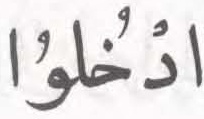 ادْخُلوُا